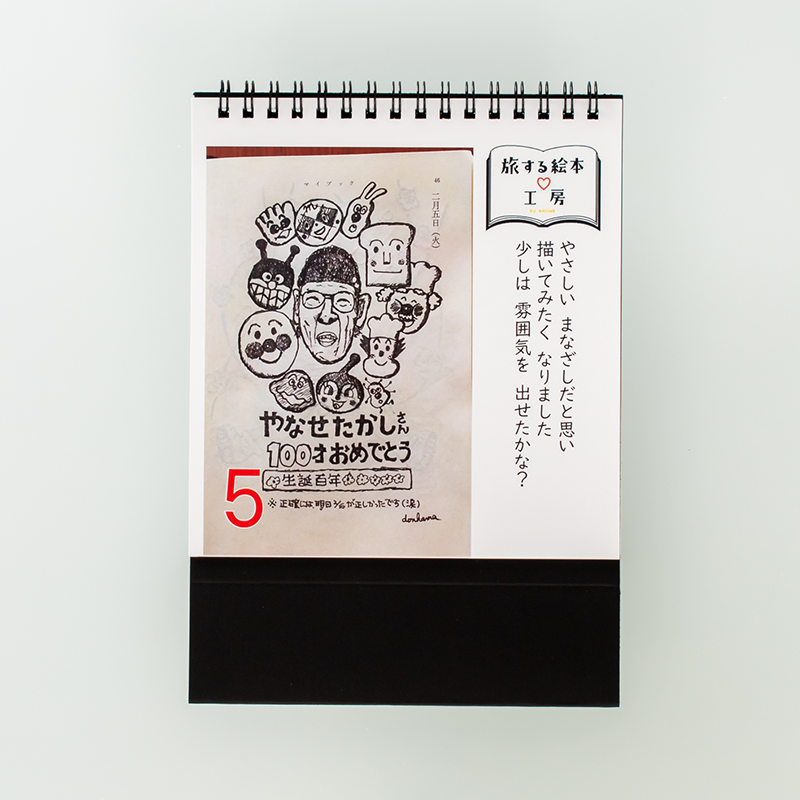 旅する絵本
工房
やさしい まなざしだと思い
描いてみたく なりました
少しは 雰囲気を 出せたかな?
マイブック
46
二月五日(火)
やなせたかしさん
100才おめでとう
生誕百年
5
※正確には、明日2/6が正しかったです(涙)
donhana